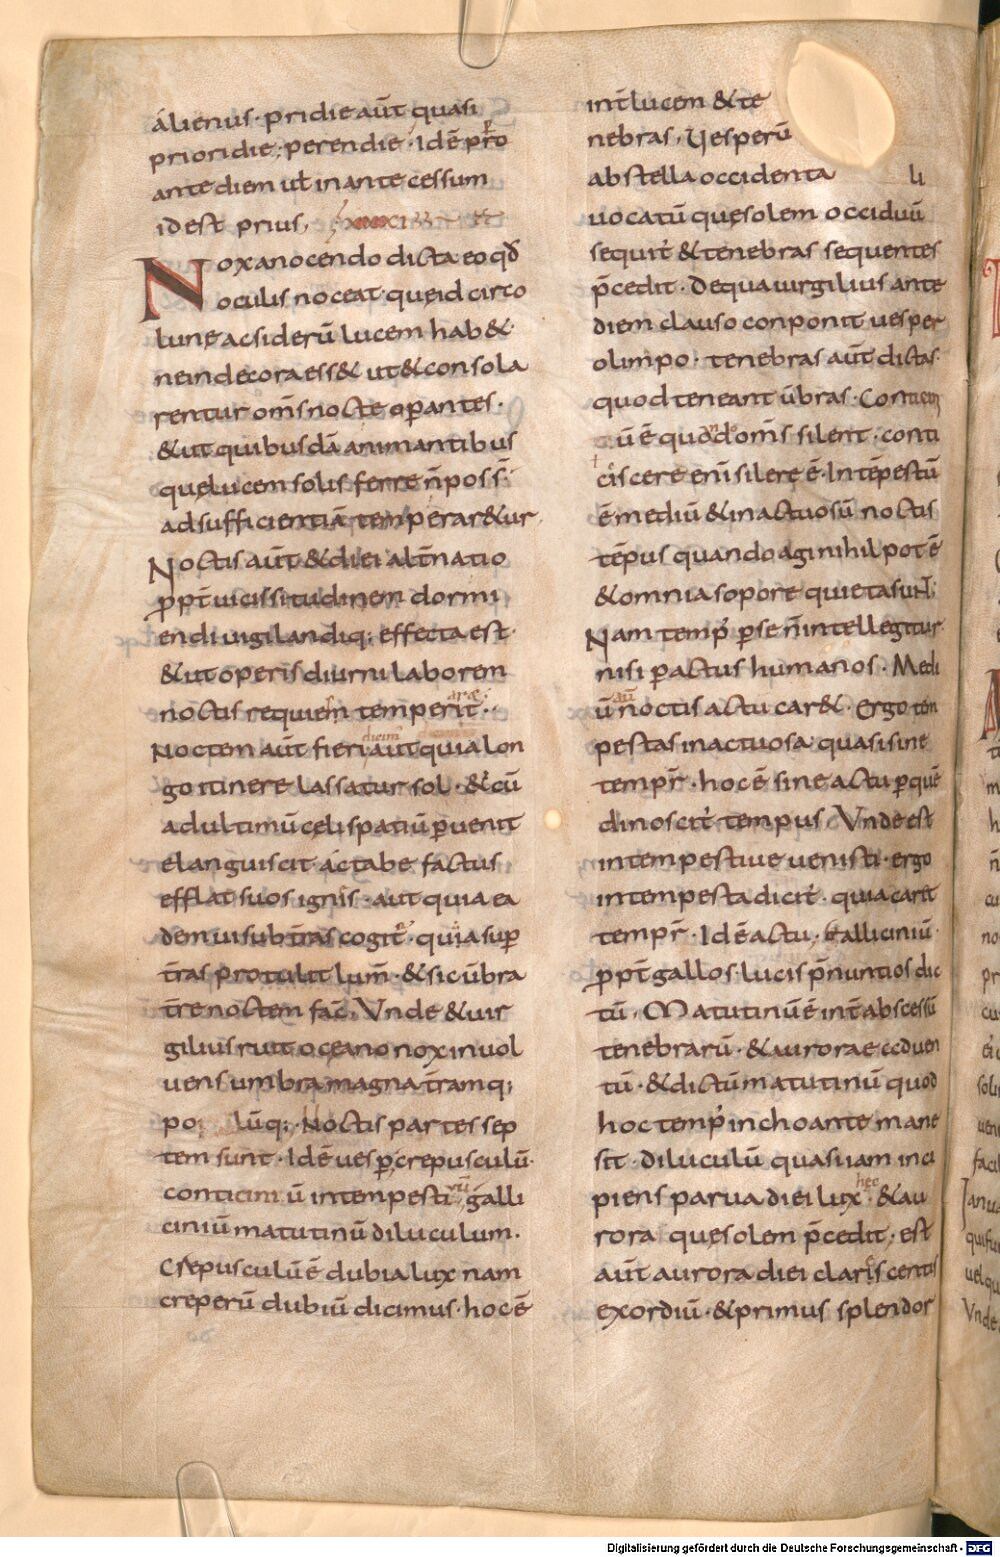 alienus· pridie aūt quasi
priori die; perendie· Idē p̄ro
ante diem ut̄ in ante cessum
id est prius,
Nox a nocendo dicta eo qd̄
oculis noceat· que id circo
lune ac siderū lucem hab&
ne indecora ess& ut & consola
rentur om̄s nocte op̄antes·
& ut quibusdā animantibus
quę lucem solis ferre n̄ poss̄·
ad sufficientiā temperar&ur
Noctis aūt & diei alt̄natio
p̄pt̄ uicissitudinem dormi
endi uigilandiq; effecta est·
& ut operis diurni laborem
noctis requiem temperit··
Noctem aūt fieri aut quia lon
go itinere lassatur sol· & cū
ad ultimū celi spatiū p̄uenit
elanguiscit ac tabefactus
efflat suos ignis· aut quia ea
dem ui sub t̄ras cogit̄· quia sup̄
t̄ras protulit lum̄· & sic ūbra
t̄re noctem fac̄, Vnde & uir
gilius ruit oceano nox inuol
uens umbra magna t̄ramq;
po lūq;· Noctis partes sep
tem sunt· Idē uesp̄ crepusculū·
conticiniū intempestiuū galli
ciniū matutinū diluculum·
Crepusculū ē dubia lux nam
creperū dubiū dicimus· hoc ē
int̄ lucem & te
nebras, Uesperū
ab stella occidenta li
uocatū quę solem occiduū
sequit̄ & tenebras sequentes
p̄cedit· De qua uirgilius ante
diem clauso conponit uesper
olimpo· tenebras aūt dictas·
quod teneant ūbras· Conticin
ū ē quando om̄s silent· conti
ciscere enī silere ē· Intēpestū
ē mediū & inactuosū noctis
tēpus quando agi nihil pot ē
& omnia sopore quieta sunt·
Nam temp̄ p̄ se n̄ intellegitur
nisi p̄ actus humanos· Medi
ū aū noctis actu car&· Ergo tem
pestas inactuosa quasi sine
tempr̄· hoc ē sine actu p̄ quē
dinoscit̄ tempus, Vnde est
intempestiue uenisti· ergo
intempesta dicit̄· quia caret
tempr̄· Id ē actu· Galliciniū
p̄pt̄ gallos lucis p̄nuntios dic
tū, Matutinū ē int̄ abscessū
tenebrarū· & aurorae aduen
tū· & dictū matutinū quod
hoc temp̄ inchoante mane
sit· diluculū quasi iam inci
piens parua diei lux hęc· & au
rora quę solem p̄cedit· est
aūt aurora diei clariscentis
exordiū· & primus splendor
Digitalisierung gefördert durch die Deutsche Forschungsgemeinschaft - DFG